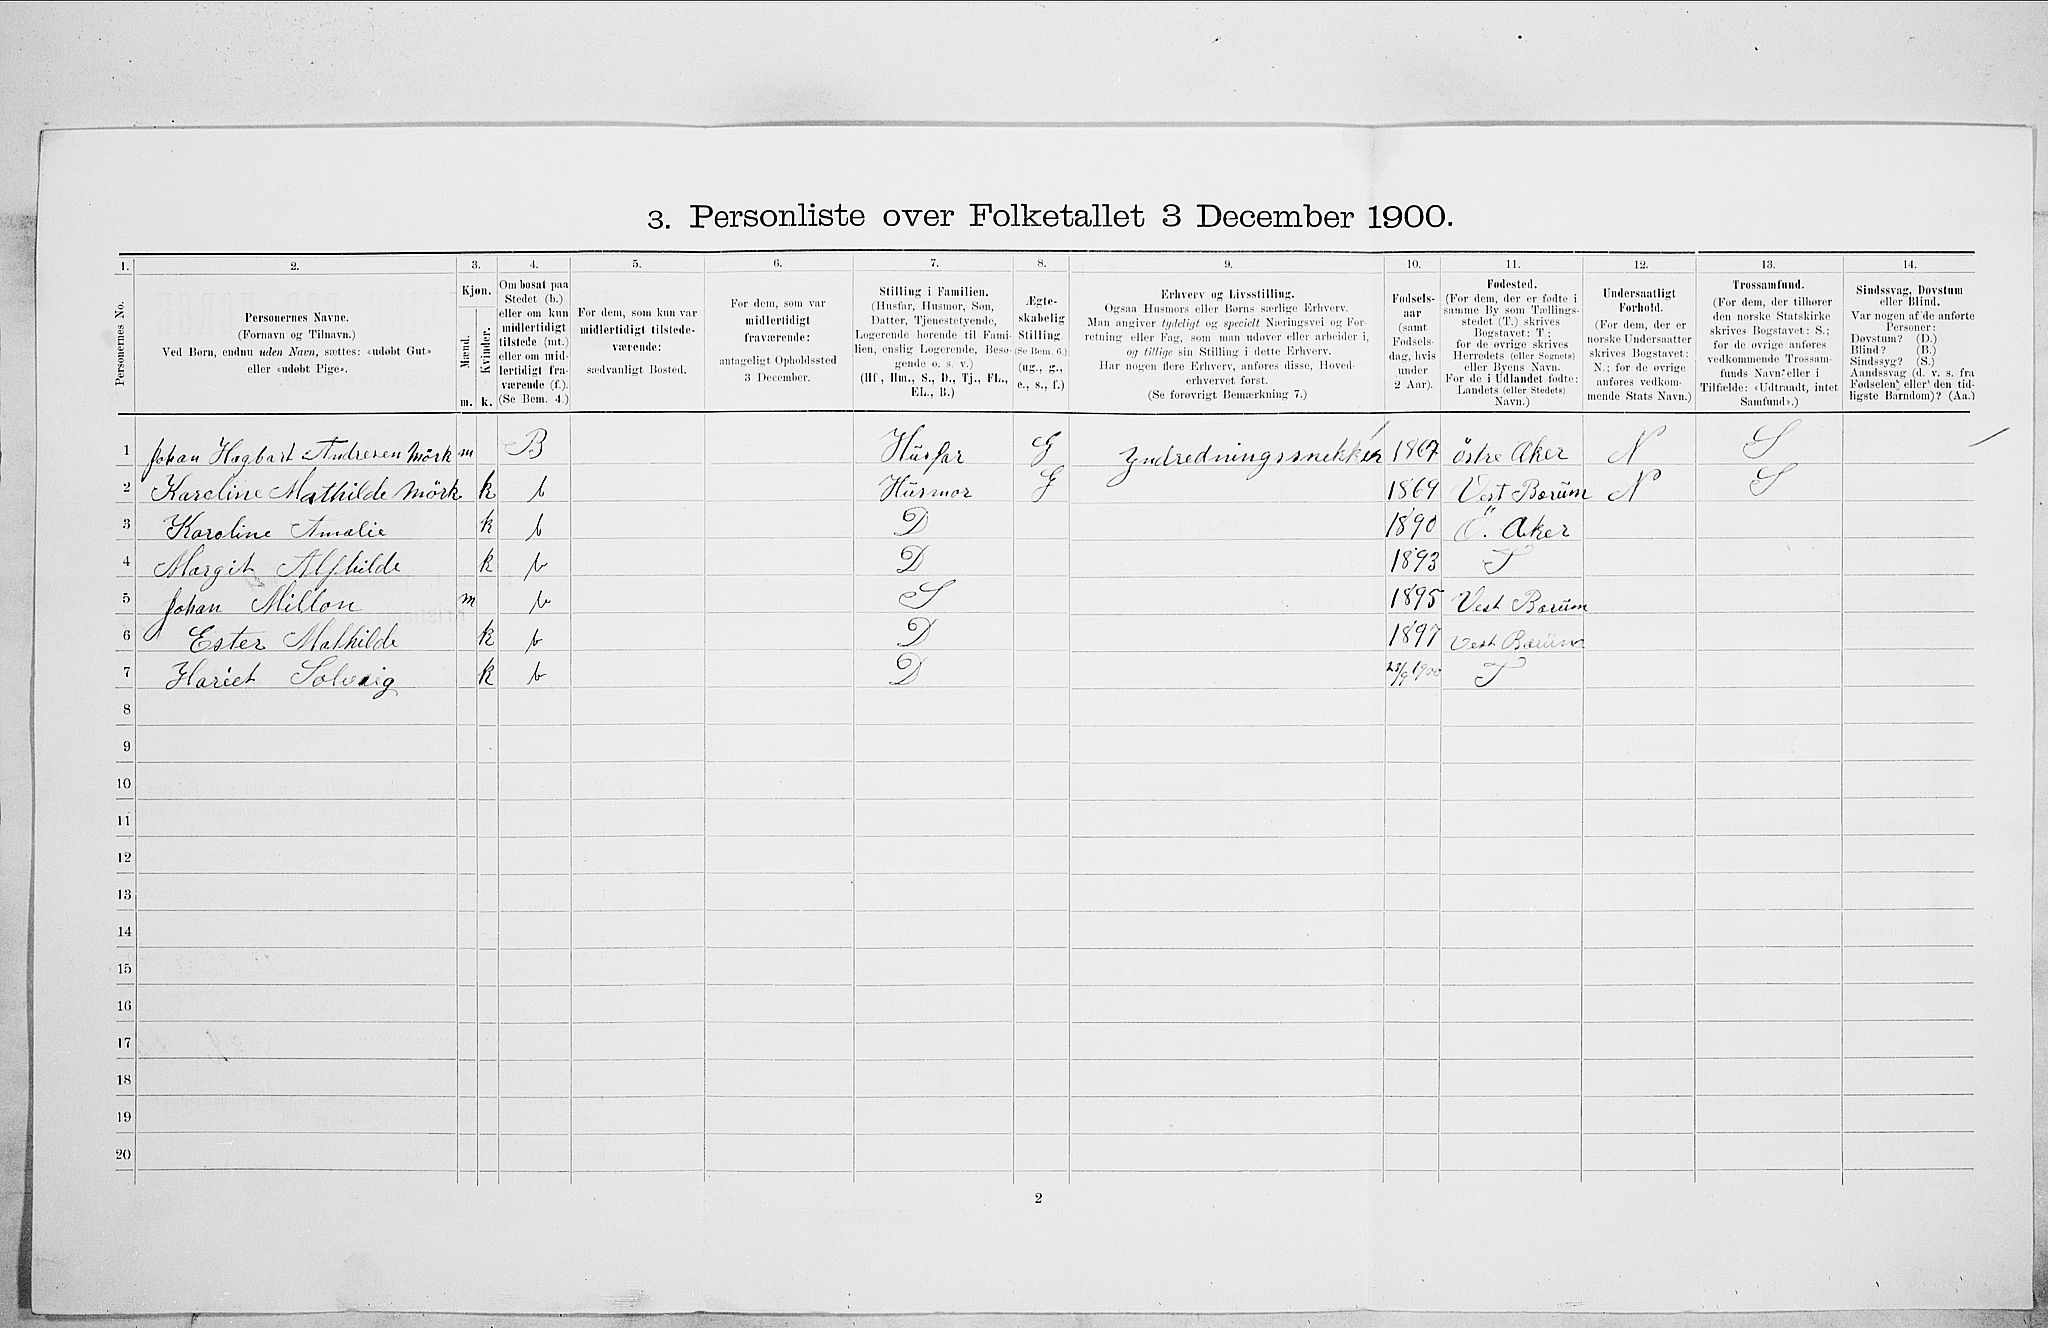 3. Personliste over Folketallet 3 December 1900.
1. 2. 3. 4. 5. 6. 7. 8. 9. 10. 11. 12. 13. 14.
Personernes No.
Personernes Navne.
(Fornavn og Tilnavn.)
Ved Børn, endnu uden Navn, sættes: «udøbt Gut»
eller «udøbt Pige».
Kjøn.
Mænd.
Kvinder.
m. k.
Om bosat paa
Stedet (b.)
eller om kun
midlertidigt
tilstede (mt.)
eller om mid-
lertidigt fra-
værende (f.).
(Se Bem. 4.)
For dem, som kun var
midlertidigt tilstede-
værende:
sædvanligt Bosted.
For dem, som var
midlertidigt
fraværende:
antageligt Opholdssted
3 December.
Stilling i Familien.
(Husfar, Husmor, Søn,
Datter, Tjenestetyende,
Logerende hørende til Fami-
lien, enslig Logerende, Besø-
gende o. s. v.)
(Hf., Hm., S., D., Tj., FL.,
EL., B.)
Ægte-
skabelig
Stilling.
(Se Bem. 6.)
(ug., g.,
e., s., f.)
Erhverv og Livsstilling.
Ogsaa Husmors eller Børns særlige Erhverv.
Man angiver tydeligt og specielt Næringsvei og For-
retning eller Fag, som man udøver eller arbeider i,
og tillige sin Stilling i dette Erhverv.
Har nogen flere Erhverv, anføres disse, Hoved-
erhvervet først.
(Se forøvrigt Bemærkning 7.)
Fødsels-
aar
(samt
Fødsels-
dag, hvis
under
2 Aar).
Fødested.
(For dem, der er fødte i
samme By som Tællings-
stedet (T.) skrives
Bogstavet: T.;
for de øvrige skrives
Herredets (eller Sognets)
eller Byens Navn.
For de i Udlandet fødte:
Landets (eller Stedets)
Navn.)
Undersaatligt
Forhold.
(For dem, der er
norske Undersaatter
skrives Bogstavet:
N.; for de øvrige
anføres vedkom-
mende Stats Navn.)
Trossamfund.
(For dem, der tilhører
den norske Statskirke
skrives Bogstavet: S.;
for de øvrige anføres
vedkommende Trossam-
funds Navn eller i
Tilfælde: «Udtraadt, intet
Samfund».)
Sindssvag, Døvstum
eller Blind.
Var nogen af de anførte
Personer:
Døvstum? (D.)
Blind? (B.)
Sindssyg? (S.)
Aandssvag (d. v. s. fra
Fødselen eller den tid-
ligste Barndom)? (Aa.)
1 Johan Hagbart Andresen Mörk m B Husfar G Yndredningssnekker 1867 östre Aker N S
2 Karoline Mathilde Mörk k b Husmor G 1869 Vest Bærum N S
3 Karoline Amalie k b D 1890 Ö. Aker
4 Margit Alfhilde k b D 1893 T
5 Johan Millon m b S 1895 Vest Bærum
6 Ester Mathilde k b D 1897 Vest Bærum
7 Hariet Solveig k b D 23/9 1900 T
8
9
10
11
12
13
14
15
16
17
18
19
20
2